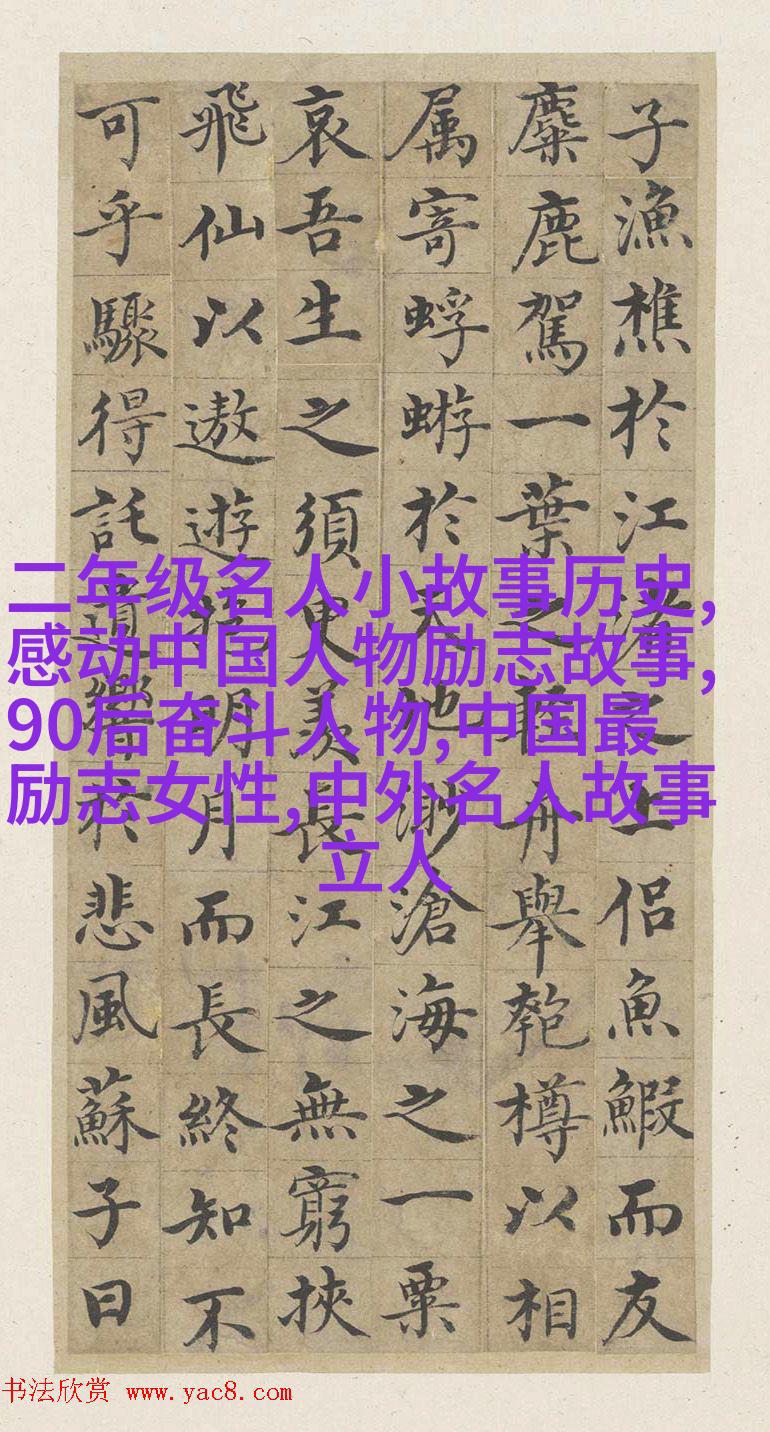 子漁樵於江渚之上侶魚鰕而友
麋鹿駕一葉之輕舟舉匏樽以相
属寄蜉蝣於天地渺滄海之一粟
哀吾生之須臾羨長江之無窮挾
飛仙以遨遊抱明月而長終知不
可乎驟得託遺響於悲風蘇子曰
二年级名人小故事历史,
感动中国人物励志故事,
90后奋斗人物,中国最
励志女性,中外名人故事
立人
书法欣赏 www.yac8.com